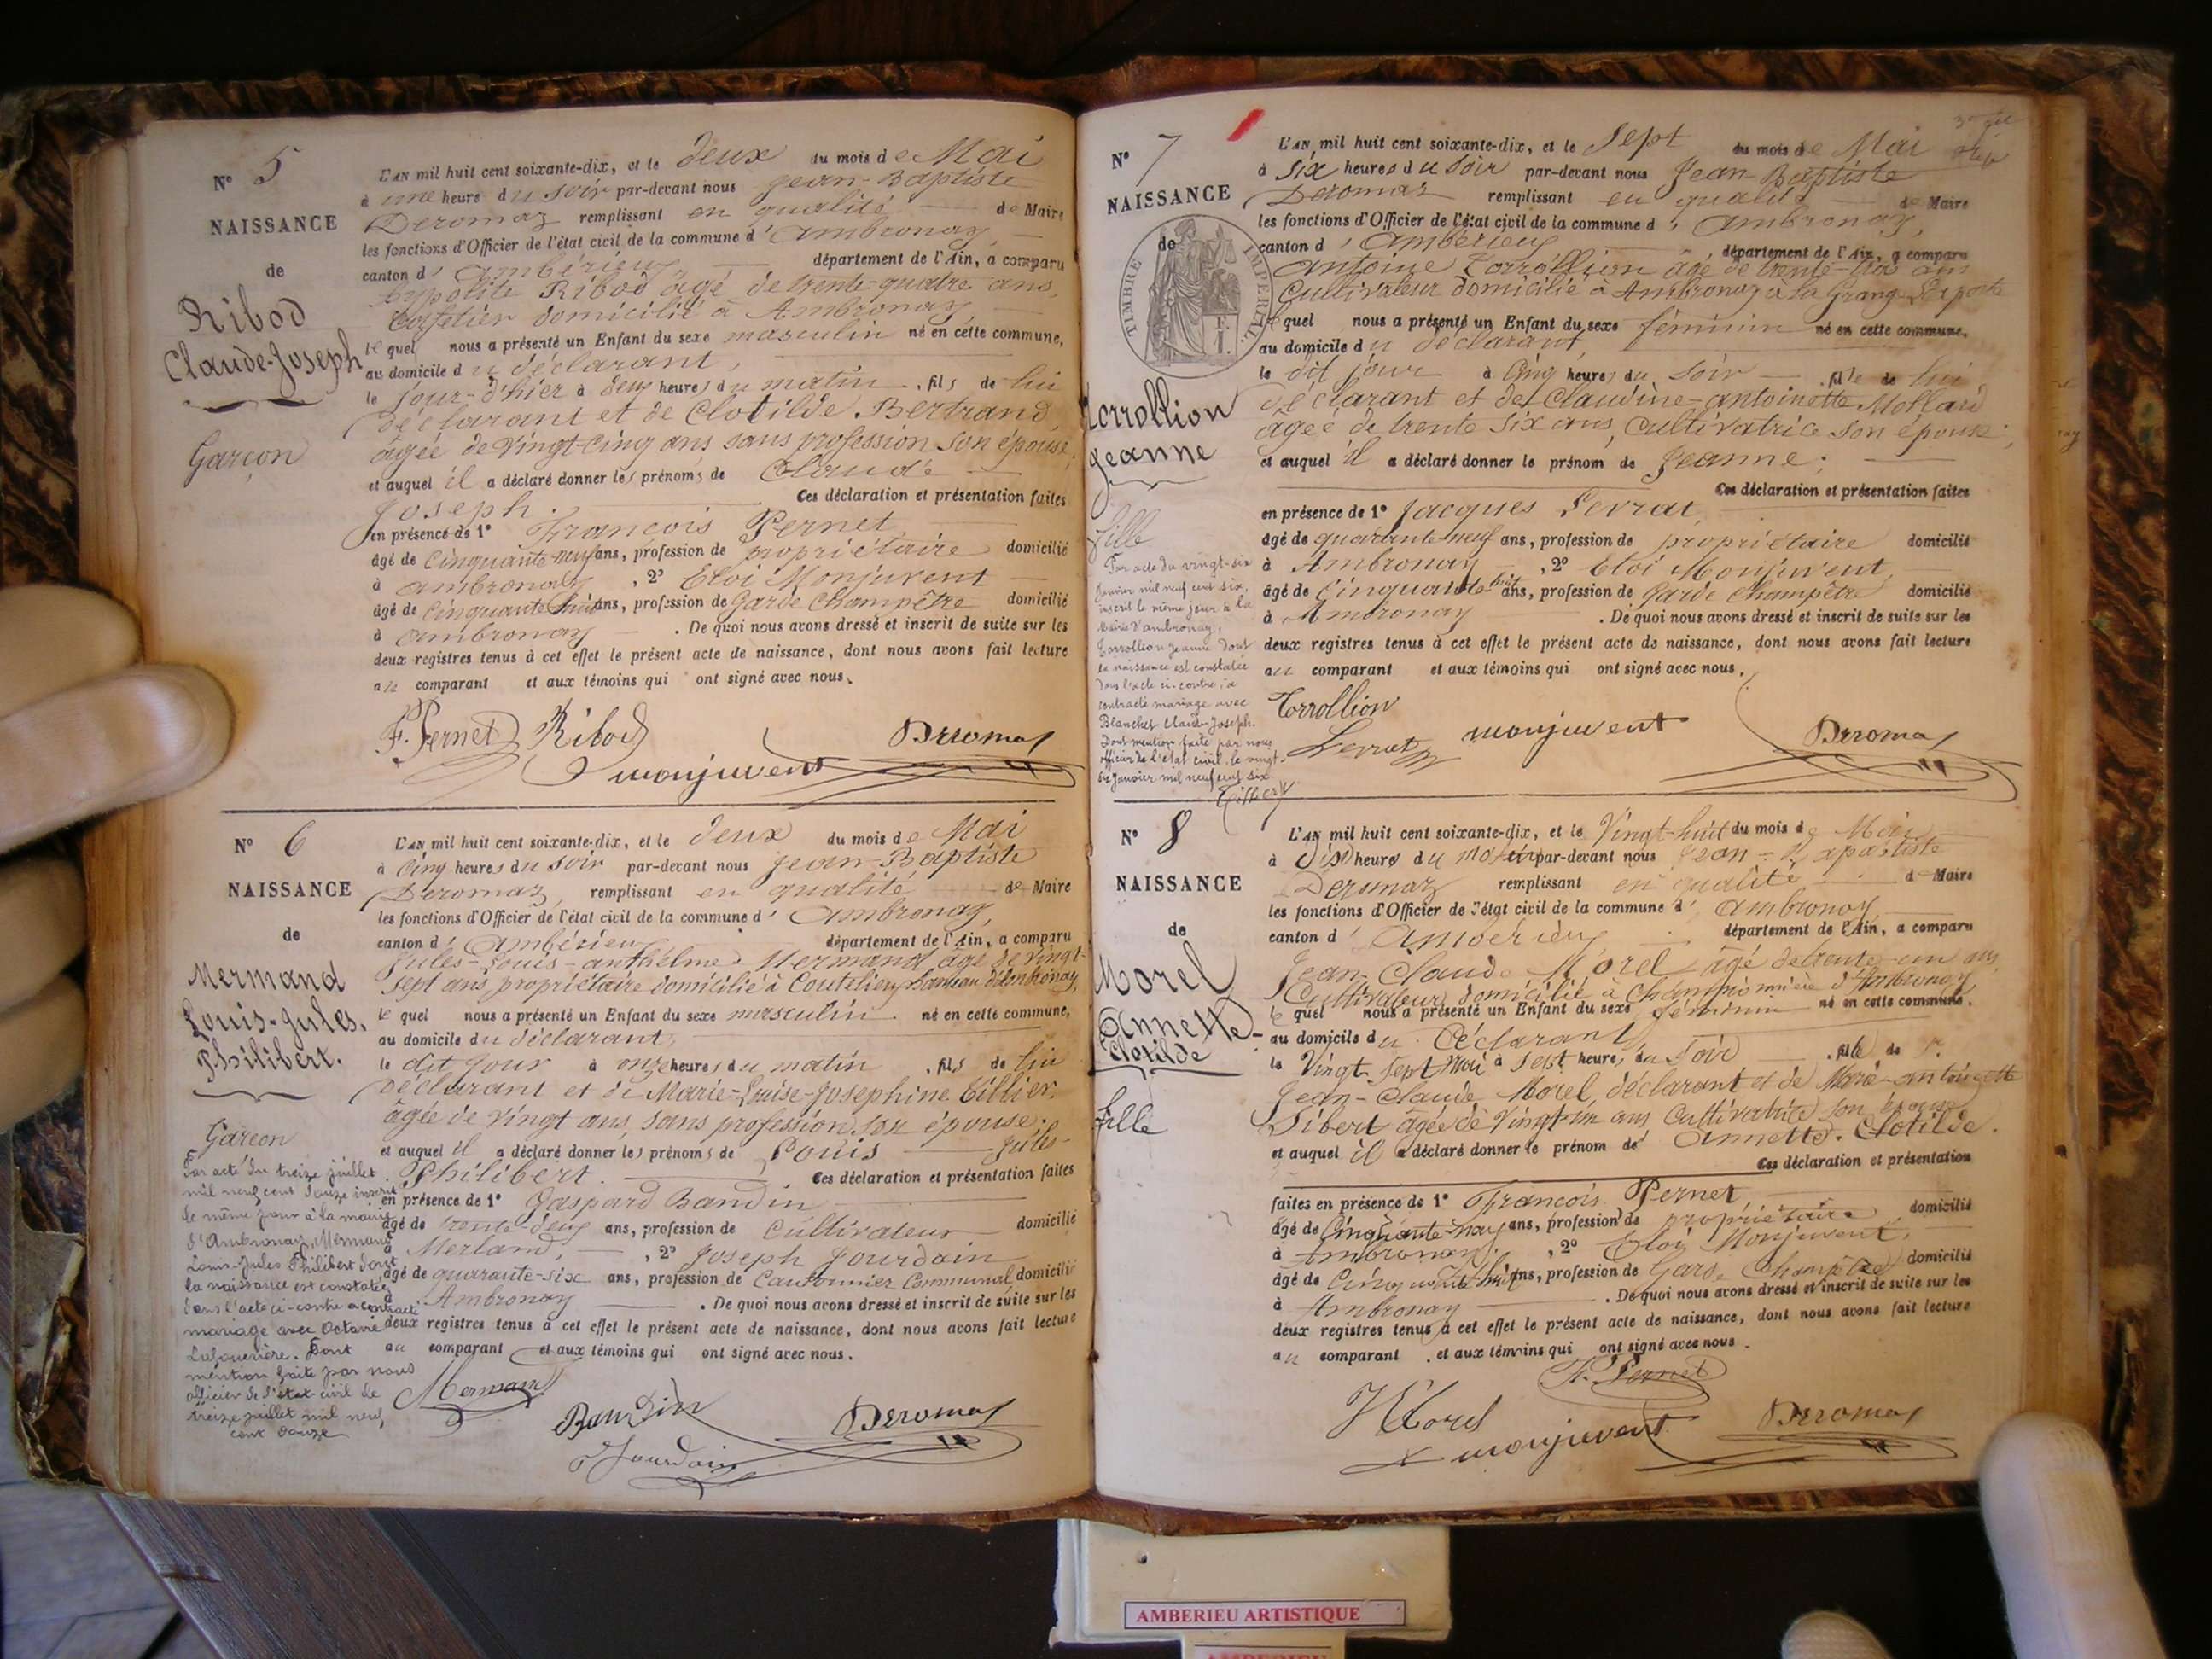 N° 5
NAISSANCE
de
Ribod
Claude-Joseph
Garçon
L'AN mil huit cent soixante-dix, et le deux du mois de Mai
à une heure du soir par-devant nous Jean-Baptiste
Deromaz remplissant en qualité de Maire
les fonctions d'Officier de l'état civil de la commune d'Ambronay,
canton d'Ambérieu département de l'Ain, a comparu
hypolite Ribod agé de trente-quatre ans,
Cafetier domicilié à Ambronay,
lequel nous a présenté un Enfant du sexe masculin né en cette commune,
au domicile du déclarant,
le jour-d'hier à deux heures du matin, fils de lui
déclarant et de Clotilde Bertrand,
âgée de vingt-cinq ans sans profession son épouse,
et auquel il a déclaré donner les prénoms de Claude
Joseph. Ces déclaration et présentation faites
en présence de 1° François Pernet
âgé de Cinquante-neuf ans, profession de propriétaire domicilié
à ambronay, 2° Eloi Monjuvent
âgé de Cinquante huit ans, profession de Garde Champêtre domicilié
à ambronay. De quoi nous avons dressé et inscrit de suite sur les
deux registres tenus à cet effet le présent acte de naissance, dont nous avons fait lecture
au comparant et aux témoins qui ont signé avec nous.
F. Pernet Ribod Deromaz
monjuvent
N° 6
NAISSANCE
de
Mermand
Louis-Jules.
Philibert.
Garçon
Par acte du treize juillet
mil neuf cent douze inscrit
le même jour à la mairie
d'Ambronay, Mermand
Louis-Jules Philibert dont
la naissance est constatée
dans l'acte ci-contre a contracté
mariage avec Octavie
Dont
mention faite par nous
officier de l'état-civil le
treize juillet mil neuf
cent douze
L'AN mil huit cent soixante-dix, et le deux du mois de Mai
à Cinq heures du soir par-devant nous Jean-Baptiste
Deromaz, remplissant en qualité de Maire
les fonctions d'Officier de l'état civil de la commune d'Ambronay,
canton d'Ambérieu département de l'Ain, a comparu
Jules-Louis-anthelme Mermand âgé de vingt-
sept ans, propriétaire domicilié à Coutelieu, hameau d'Ambronay,
lequel nous a présenté un Enfant du sexe masculin né en cette commune,
au domicile du déclarant,
le dit jour à onze heures du matin, fils de lui
déclarant et de Marie-Louise-Josephine Tillier,
âgée de vingt ans, sans profession, son épouse;
et auquel il a déclaré donner les prénoms de Louis Jules-
Philibert. Ces déclaration et présentation faites
en présence de 1° Gaspard Baudin
âgé de trente-deux ans, profession de Cultivateur domicilié
à Merland, 2° Joseph Jourdain
âgé de quarante-six ans, profession de Cantonnier Communal domicilié
à Ambronay. De quoi nous avons dressé et inscrit de suite sur les
deux registres tenus à cet effet le présent acte de naissance, dont nous avons fait lecture
au comparant et aux témoins qui ont signé avec nous.
Mermand
Baudin Deromaz
Jourdain
N° 7
NAISSANCE
de
TIMBRE IMPERIAL
Torrollion
Jeanne
fille
Par acte du vingt-six
Janvier mil neuf cent six,
inscrit le même jour à la
Mairie d'ambronay,
Torrollion Jeanne dont
la naissance est constatée
dans l'acte ci-contre, a
contracté mariage avec
Blanchet Claude-Joseph.
Dont mention faite par nous
officier de l'état civil, le vingt-
six Janvier mil neuf cent six
L'AN mil huit cent soixante-dix, et le Sept du mois de Mai
à Six heures du soir par-devant nous Jean-Baptiste
Deromaz remplissant en qualité de Maire
les fonctions d'Officier de l'état civil de la commune d'Ambronay,
canton d'Ambérieu département de l'Ain, a comparu
Antoine Torrollion âgé de trente-trois ans
Cultivateur domicilié à Ambronay à la Grange
lequel nous a présenté un Enfant du sexe féminin né en cette commune,
au domicile du déclarant,
le dit jour à Cinq heures du soir, fille de lui
déclarant et de Claudine-antoinette Mollard
âgée de trente six ans, Cultivatrice son épouse;
et auquel il a déclaré donner le prénom de Jeanne;
Ces déclaration et présentation faites
en présence de 1° Jacques Levrat,
âgé de quarante neuf ans, profession de propriétaire domicilié
à Ambronay, 2° Eloi Monjuvent,
âgé de Cinquante-huit ans, profession de Garde Champêtre domicilié
à Ambronay. De quoi nous avons dressé et inscrit de suite sur les
deux registres tenus à cet effet le présent acte de naissance, dont nous avons fait lecture
au comparant et aux témoins qui ont signé avec nous.
Torrollion
Levrat monjuvent Deromaz
N° 8
NAISSANCE
de
Morel
Annette-
Clotilde
fille
L'AN mil huit cent soixante-dix, et le Vingt-huit du mois de Mai
à dix heures du matin par-devant nous Jean-Bapastiste
Deromaz remplissant en qualité de Maire
les fonctions d'Officier de l'état civil de la commune d'Ambronay
canton d'Ambérieu département de l'Ain, a comparu
Jean-Claude Morel âgé de trente-un ans,
Cultivateur domicilié à Championnière d'Ambronay
lequel nous a présenté un Enfant du sexe féminin né en cette commune,
au domicile du Déclarant,
le Vingt-sept Mai à Sept heures du soir, fille de
Jean-Claude Morel, déclarant et de Marie-antoinette
Sibert âgée de Vingt-un ans Cultivatrice son épouse
et auquel il a déclaré donner le prénom de Annette-Clotilde.
Ces déclaration et présentation
faites en présence de 1° François Pernet,
âgé de Cinquante-neuf ans, profession de propriétaire domicilié
à Ambronay, 2° Eloi Monjuvent,
âgé de Cinquante-huit ans, profession de Garde Champêtre domicilié
à Ambronay. De quoi nous avons dressé et inscrit de suite sur les
deux registres tenus à cet effet le présent acte de naissance, dont nous avons fait lecture
au comparant et aux témoins qui ont signé avec nous.
F. Pernet
Morel
monjuvent Deromaz
AMBERIEU ARTISTIQUE
AMBERIEU